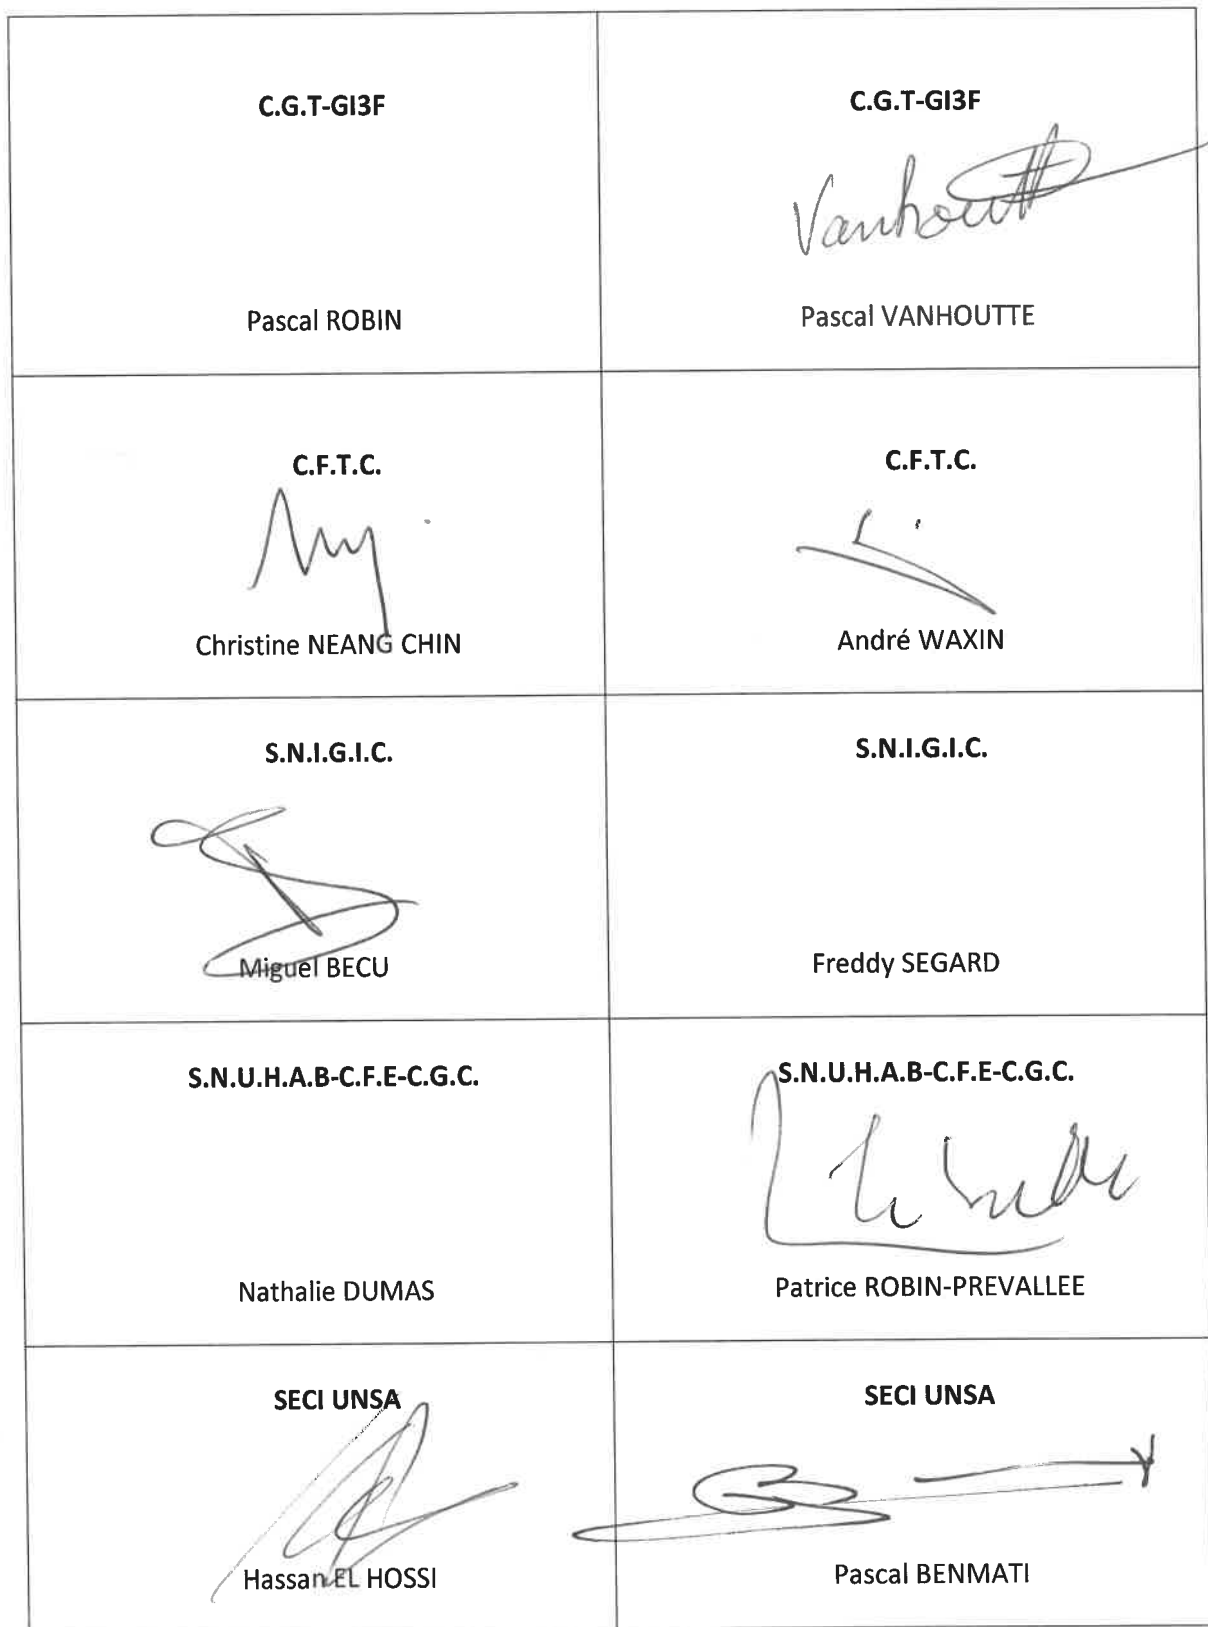 C.G.T-GI3F
Pascal ROBIN
C.G.T-GI3F
Vanhoutt
Pascal VANHOUTTE
C.F.T.C.
Christine NEANG CHIN
C.F.T.C.
André WAXIN
S.N.I.G.I.C.
Miguel BECU
S.N.I.G.I.C.
Freddy SEGARD
S.N.U.H.A.B-C.F.E-C.G.C.
Nathalie DUMAS
S.N.U.H.A.B-C.F.E-C.G.C.
Patrice ROBIN-PREVALLEE
SECI UNSA
Hassan EL HOSSI
SECI UNSA
Pascal BENMATI